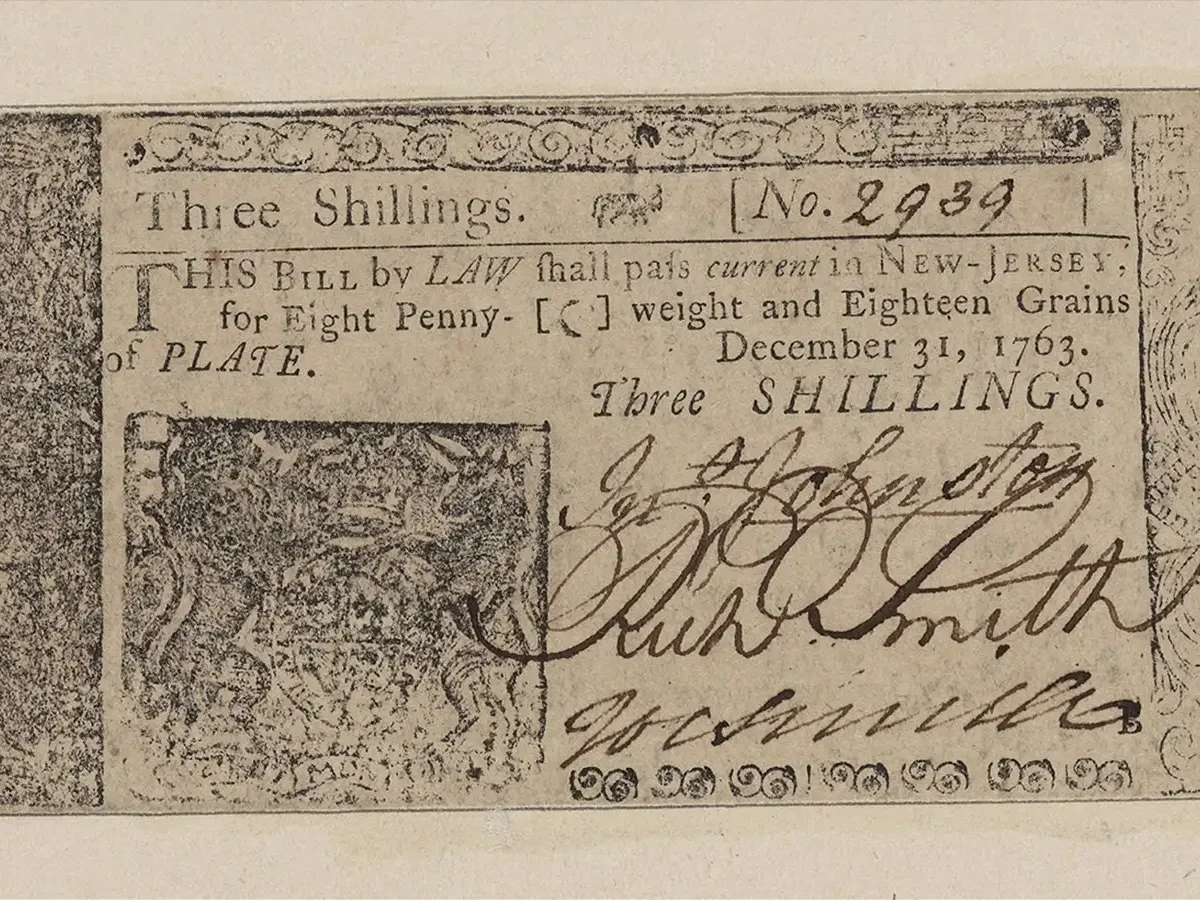 Three Shillings. [No. 2939]
THIS BILL by LAW ſhall paſs current in NEW-JERSEY,
for Eight Penny- [ ] weight and Eighteen Grains
of PLATE. December 31, 1763.
Three SHILLINGS.
Johnston
Richd. Smith
B